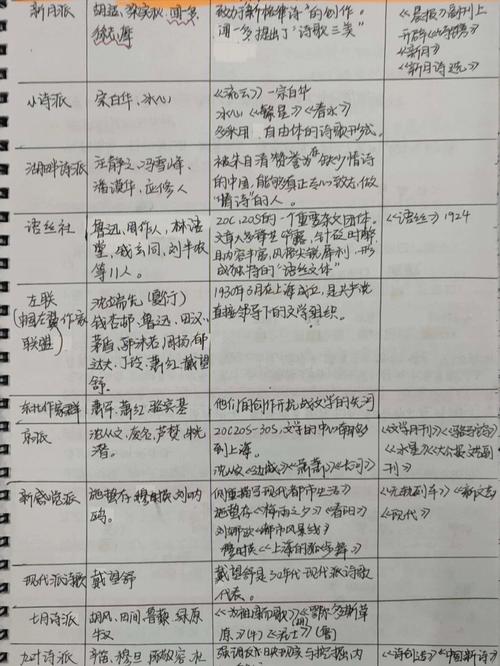 新月派
胡适、梁实秋、闻一多、
徐志摩
致力于新格律诗"的创作。
闻一多提出了"诗歌三美"
《晨报》副刊上
开辟《诗镌》
《新月》
《新月诗选》
小诗派
宗白华、冰心
《流云》—宗白华
冰心《繁星》《春水》
多采用自由体的诗歌形式。
湖畔诗派
汪静之、冯雪峰、
潘漠华、应修人
被朱自清赞誉为"在缺少情诗
的中国,能够真正专心致志做
"情诗"的人。
语丝社
鲁迅、周作人、林语
堂、钱玄同、刘半农
等11人。
20C,20S的一个重要杂文团体。
且内容丰富,风格尖锐犀利,形
成独特的"语丝文体"
《语丝》1924
左联
作家
联盟)
沈端先(夏衍)
钱杏邨、鲁迅、田汉、
茅盾、郭沫若、周扬、郁
达夫、丁玲、萧红、戴望
舒.
1930年3月在上海成立,是共产党
直接领导下的文学组织。
东北作家群
萧军、萧红、骆宾基
他们的创作开抗战文学的先河
京派
沈从文、废名、芦焚、朱光
潜。
20C20S-30S,文学的中心南移
到上海。
沈从文《边城》《萧萧》《长河》
《文学月刊》《骆驼草》
《水星》《大公报文艺副
刊》
新感觉派
施蛰存、穆时英、刘呐
鸥。
侧重描写现代都市生活
施蛰存《梅雨之夕》《春阳》
刘呐鸥《都市风景线》
穆时英《上海的狐步舞》
《无轨列车》《新文艺》
《现代》
现代派诗歌
戴望舒
戴望舒是30年代现代派诗歌
代表。
七月诗派
胡风、田间、鲁藜、绿原
牛汉
《为祖国而歌》《鄂尔多斯草
原》(牛)《泥土》(鲁)
九叶诗派
辛笛、穆旦、陈敬容、
《诗创造》《中国新诗》